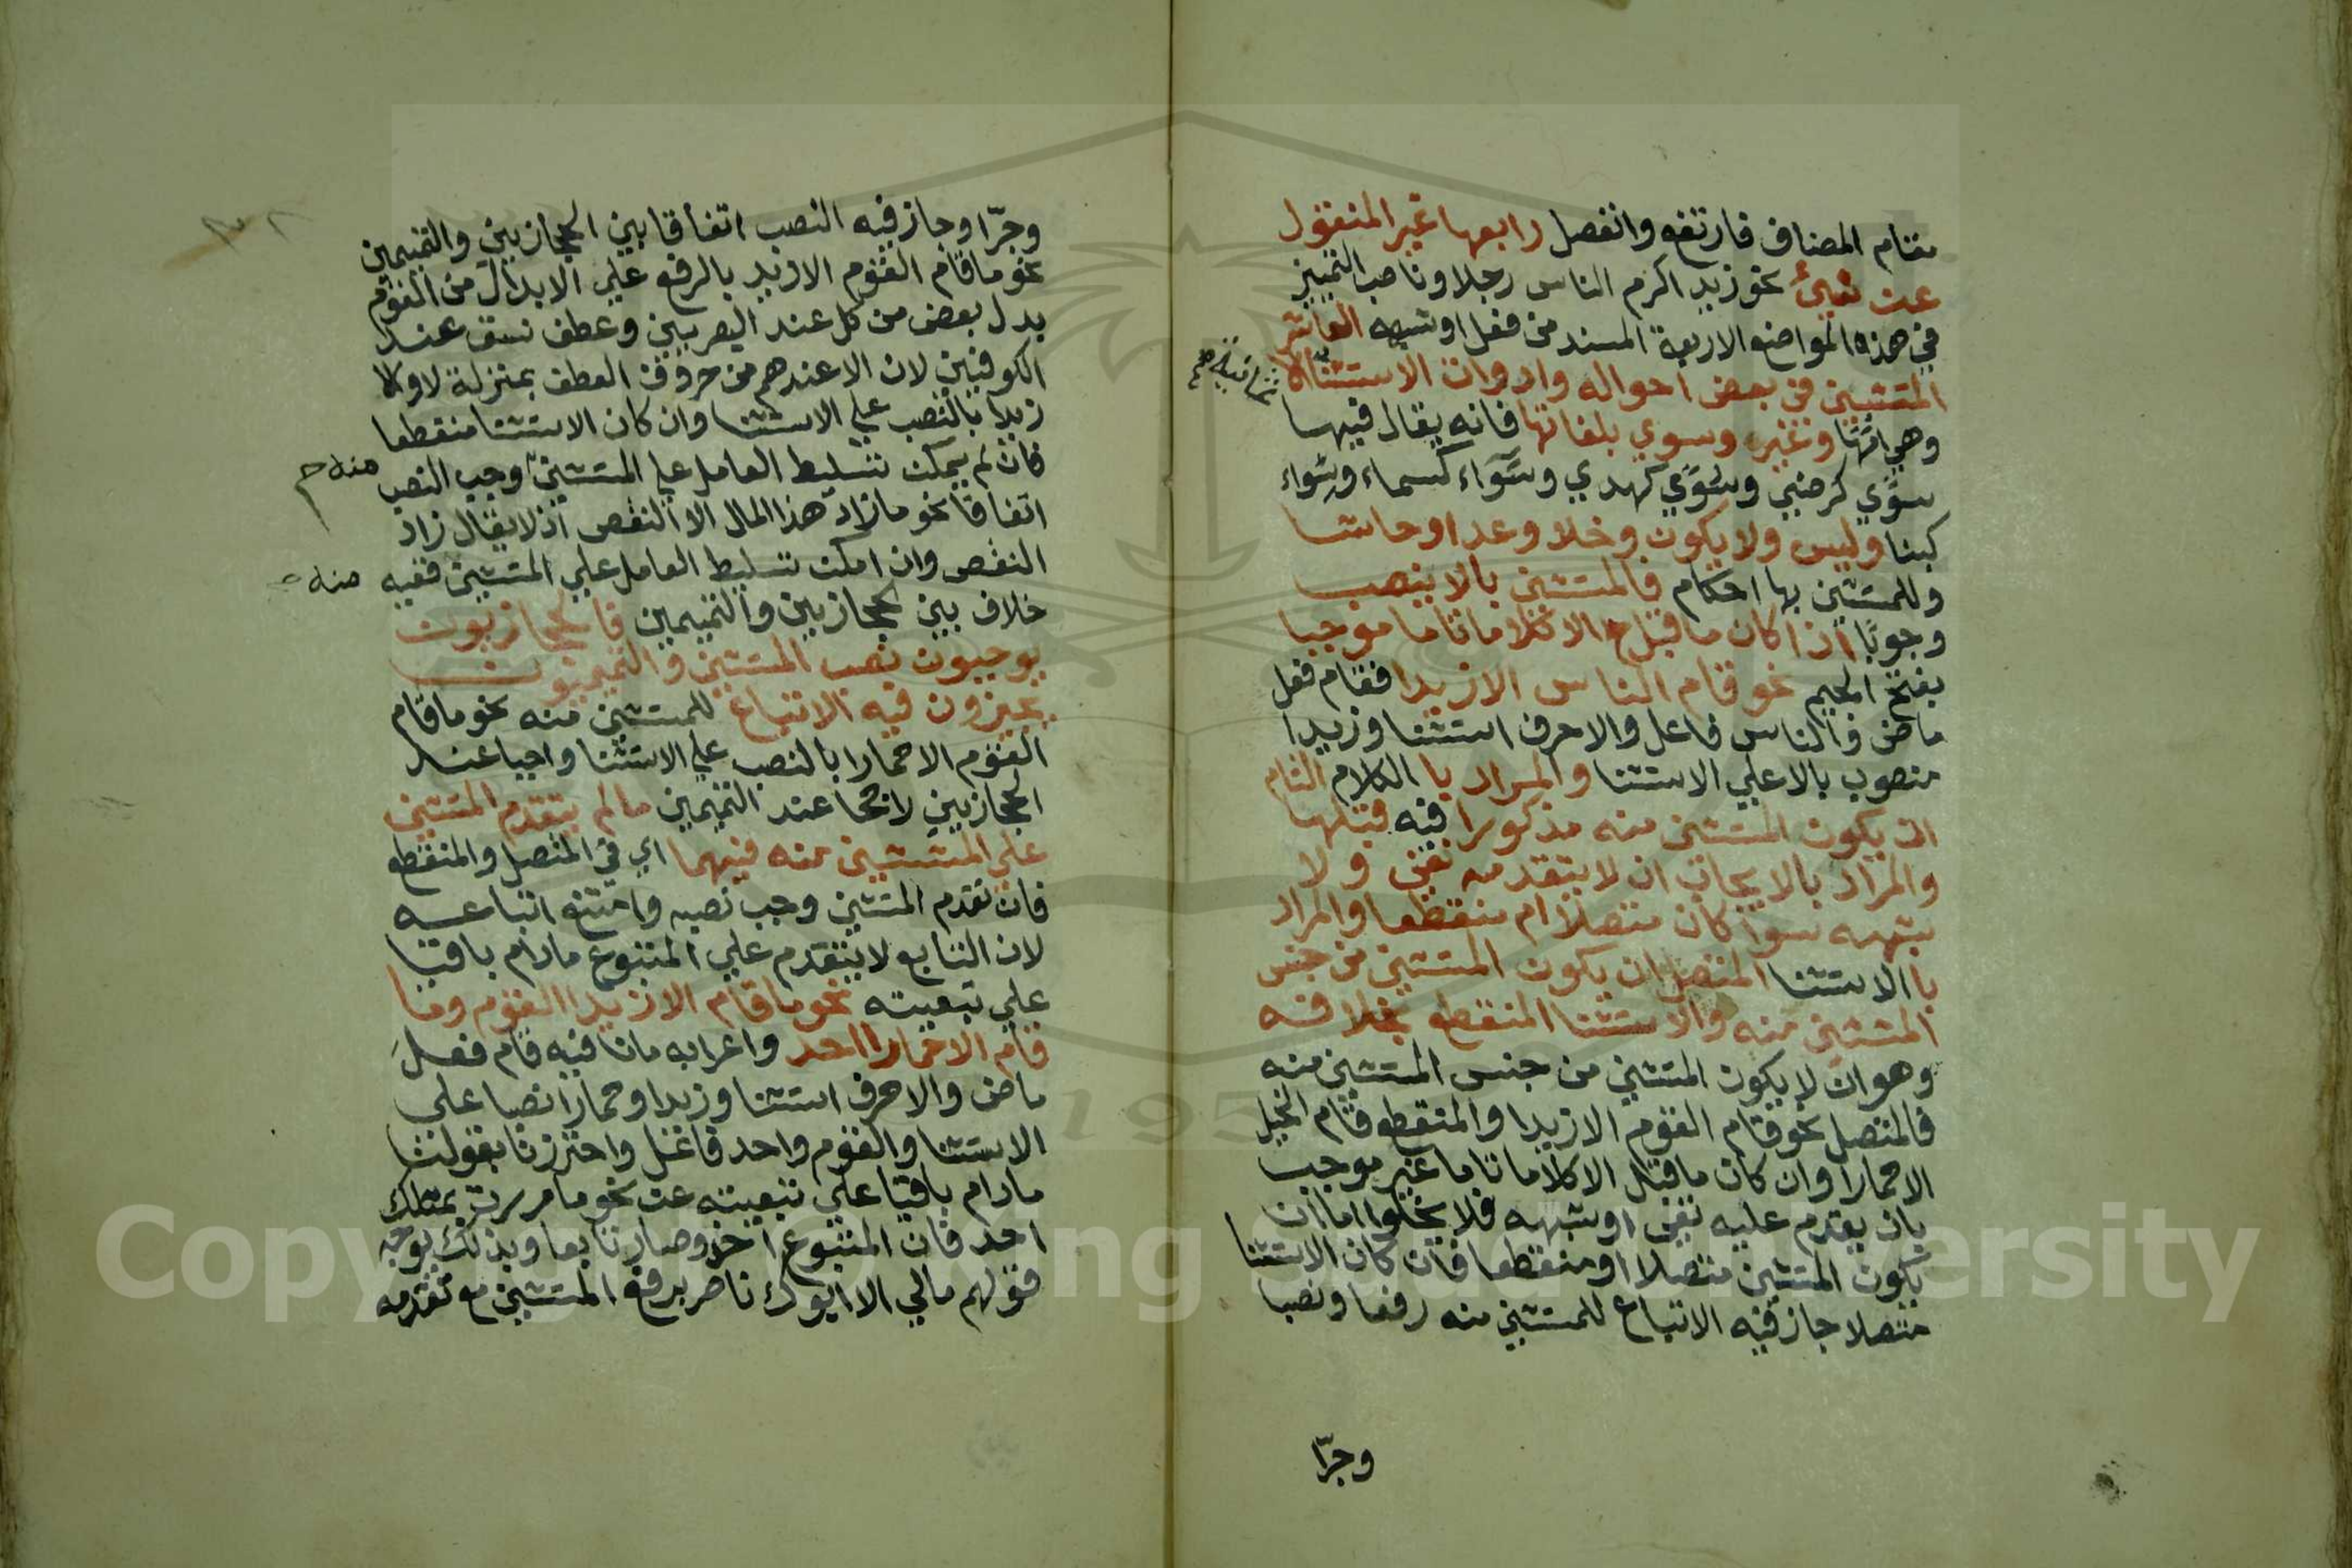 مقام المضاف فارتفع وانفصل رابعها غير المنقول
عن شيئ نحو زيد اكرم الناس رجلا وناصب التمييز
في هذه المواضع الاربعة المسند من فعل او شبهه العاشر
المستثني في بعض احواله وادوات الاستثنا
ثمانية صح
وهي امها وغير وسوي بلغاتها فانه يقال فيها
سوًي كرضي وسُوًي كهدي وسَوَآء كسماء وسِوَاء
كبنا وليس ولا يكون وخلا وعدا وحاشا
وللمستثني بها احكام فالمستثني بالا ينصب
وجوبًا اذا كان ما قبل الا كلاما تاما موجبا
بفتح الجيم نحو قام الناس الا زيدا فقام فعل
ماض والناس فاعل والا حرف استثنا وزيدا
منصوب بالا علي الاستثنا والمراد با الكلام التام
ان يكون المستثني منه مذكورا فيه قبلها
والمراد بالايجاب ان لا يتقدمه نفي ولا
شبهه سوآ كان متصلا ام منقطعا والمراد
با الاستثنا المتصل ان يكون المستثني من جنس
المستثني منه والاستثنا المنقطع بخلافه
وهو ان لا يكون المستثني من جنس المستثني منه
فالمتصل نحو قام القوم الا زيدا والمنقطع قام الخيل
الا حمارا وان كان ما قبل الا كلاما تاما غير موجب
بان يقدم عليه نفي او شبهه فلا يخلوا اما ان
يكون المستثني متصلا او منقطعا فان كان الاستثنا
متصلا جاز فيه الاتباع للمستثني منه رفعا ونصبا
وجرّا
وجرّا وجاز فيه النصب اتفاقا بين الحجازيين والتميمين
نحو ما قام القوم الا زيد بالرفع علي الابدال من القوم
بدل بعض من كل عند البصريين وعطف نسق عند
الكوفيين لان الا عندهم من حروف العطف بمنزلة لا والا
زيدا بالنصب علي الاستثنا وان كان الاستثنا منقطعا
فان لم يمكن تسليط العامل علي المستثني وجب النصب منه
اتفاقا نحو ما زاد هذا المال الا النقص اذ لا يقال زاد
النقص وان امكن تسليط العامل علي المستثني ففيه منه
خلاف بين الحجازيين والتميمين فالحجازيون
يوجبون نصب المستثني والتميميون
يجيزون فيه الاتباع للمستثني منه نحو ما قام
القوم الا حمارا بالنصب علي الاستثنا واجبا عند
الحجازيين راجحا عند التميمين ما لم يتقدم المستثني
علي المستثني منه فيهما اي في المتصل والمنقطع
فان تقدم المستثني وجب نصبه وامتنع اتباعه
لان التابع لا يتقدم علي المتبوع مادام باقيا
علي تبعيته نحو ما قام الا زيدا القوم وما
قام الا حمارا احد واعرابه ما نافيه قام فعل
ماض والا حرف استثنا وزيدا وحمارا نصبا علي
الاستثنا والقوم واحد فاعل واحترزنا بقولنا
مادام باقيا علي تبعيته عن نحو ما مررت بمثلك
احد فان المتبوع اخر وصار تابعا وبذلك يوجه
قولهم مالي الا ابوك ناصر برفع المستثني مع تقدمه
Copyright © King Saud University
195